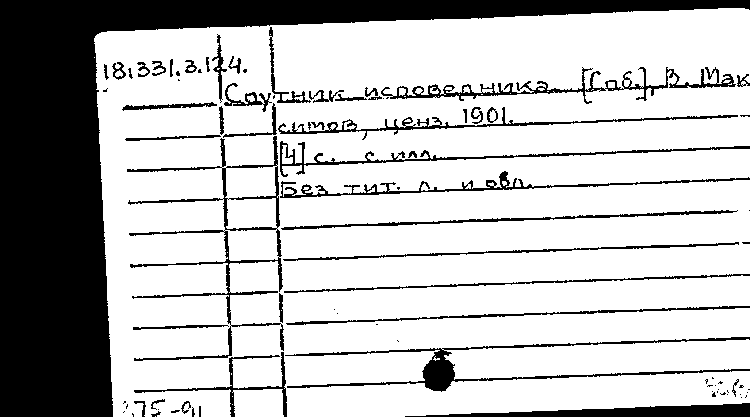 18.331.3.124.
Спутник исповедника [Спб.], В. Мак
симов, ценз. 1901.
[4] с. с илл.
Без тит. л. и обл.